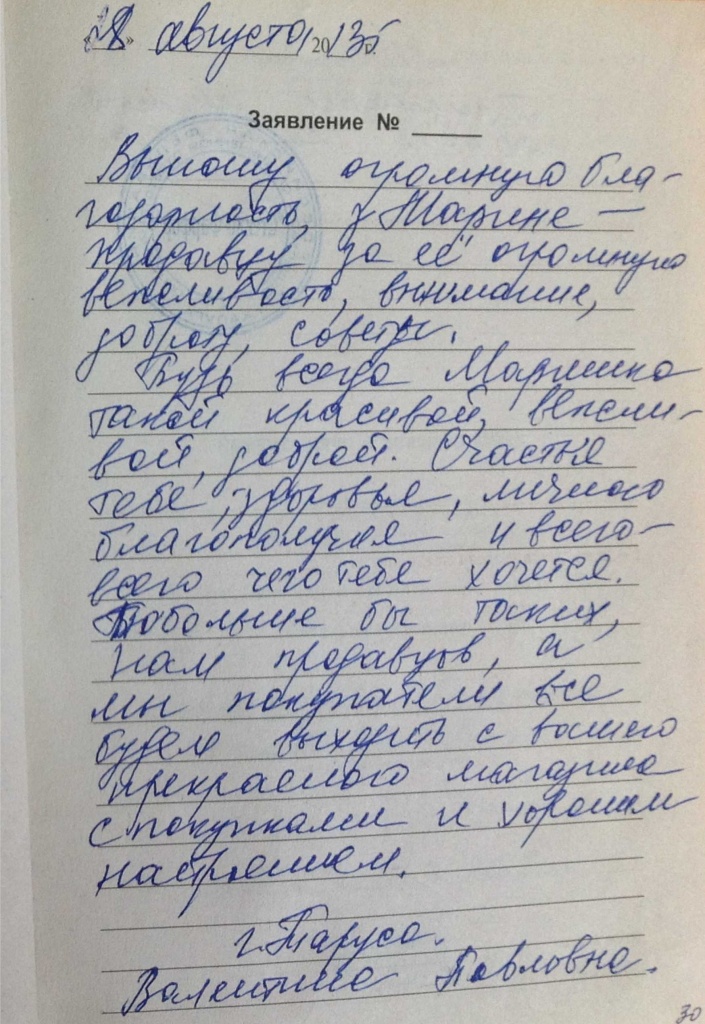 «28» августа 2013г.
Заявление № ____
Выношу огромную бла-
годарность, Марине —
продавцу за её огромную
вежливость, внимание,
доброту, советы.
Будь всегда Маришка
такой красивой, вежли-
вой, доброй. Счастья
тебе, здоровья, личного
благополучия и всего-
всего чего тебе хочется.
Побольше бы таких,
нам продавцов, а
мы покупатели все
будем выходить с вашего
прекрасного магазина
с покупками и хорошим
настроением.
г. Таруса.
Валентина Павловна.
30